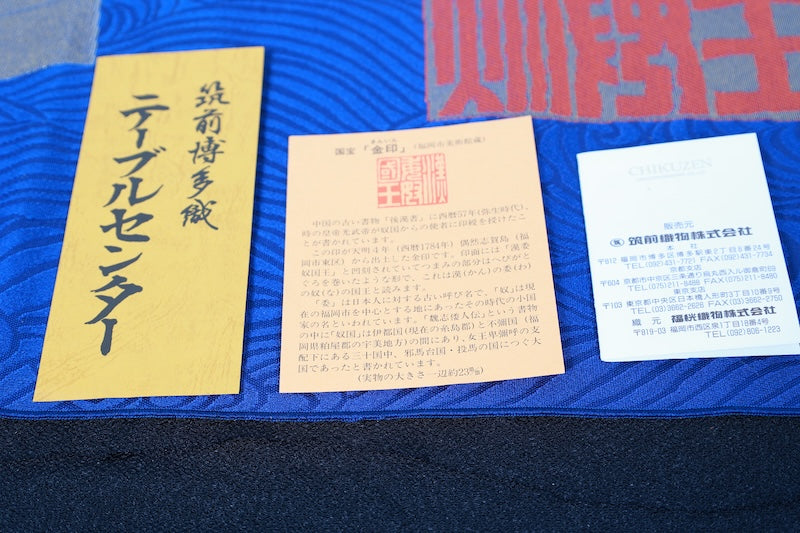 筑前博多織
テーブルセンター
国宝「金印」(福岡市美術館蔵)
きんいん
漢委奴國王
中国の古い書物「後漢書」に西暦57年(弥生時代)、
時の皇帝光武帝が奴国からの使者に印綬を授けたこ
とが書かれています。
この印が天明4年(西暦1784年)偶然志賀島(福
岡市東区)から出土した金印です。印面には「漢委
奴国王」と凹刻されていてつまみの部分はへびがと
ぐろを巻いたような形で、これは漢(かん)の委(わ)
の奴(な)の国王と読みます。
「委」は日本人に対する古い呼び名で、「奴」は現
在の福岡市を中心とする地にあったその時代の小国
家の名といわれています。「魏志倭人伝」という書物
の中に「奴国」は伊都国(現在の糸島郡)と不弥国(福
岡県粕屋郡の宇美地方)の間にあり、女王卑弥呼の支
配下にある三十国中、邪馬台国・投馬の国につぐ大
国であったと書かれています。
(実物の大きさ一辺約23㎜)
CHIKUZEN
販売元
筑前織物株式会社
本社
〒812 福岡市博多区博多駅東2丁目8番24号
TEL(092)431-7721 FAX(092)431-7734
京都支店
〒604 京都市中京区三条通り烏丸西入ル御倉町69
TEL(075)211-8488 FAX(075)211-8490
東京支店
〒103 東京都中央区日本橋人形町3丁目10番9号
TEL(03)3662-2628 FAX(03)3662-2750
織元 福絖織物株式会社
〒819-03 福岡市西区泉1丁目18番4号
TEL(092)806-1223